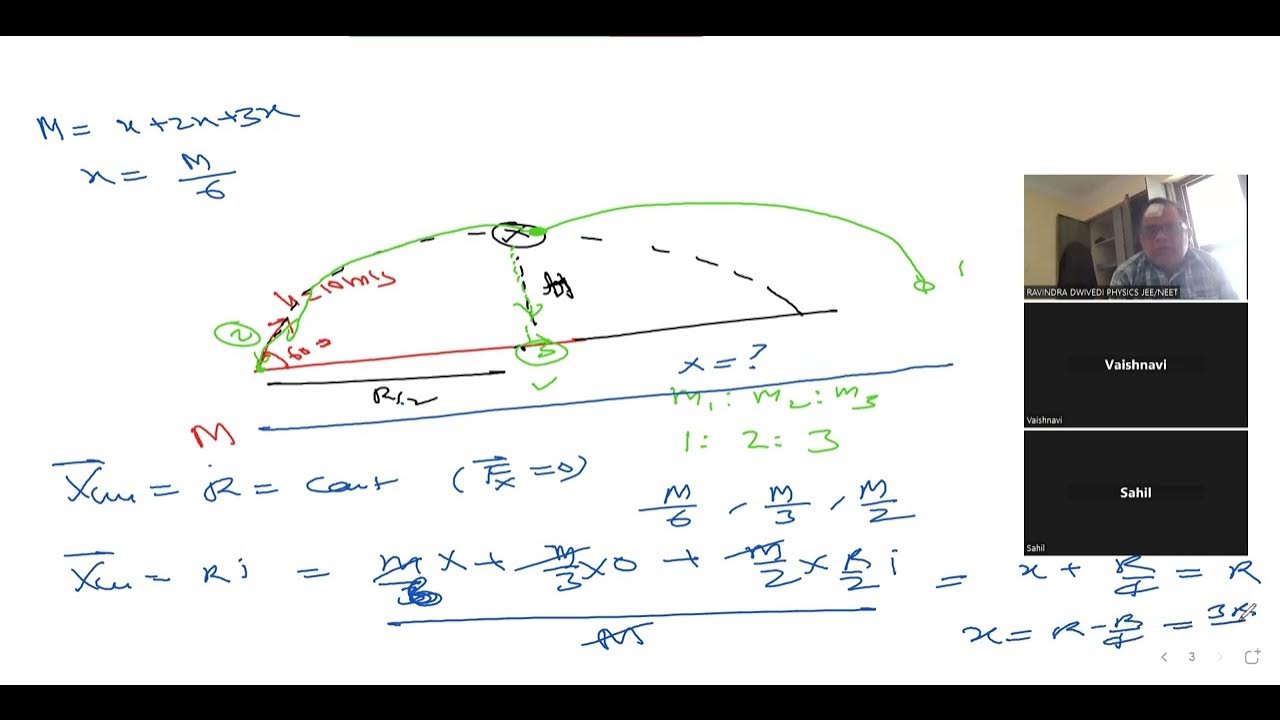 M = x+2x+3x
x = M/6
u=10m/s
2
60°
3
1
R/2
x = ?
M
m1 : m2 : m3
1 : 2 : 3
Xcm = R = const (Fx = 0)
M/6 , M/3 , M/2
Xcm = R i = M X + M/3 X 0 + M/2 X R/2 i = x + R/4 = R
M
x = R - R/4 = 3R
RAVINDRA DWIVEDI PHYSICS JEE/NEET
Vaishnavi
Vaishnavi
Sahil
Sahil
< 3 >